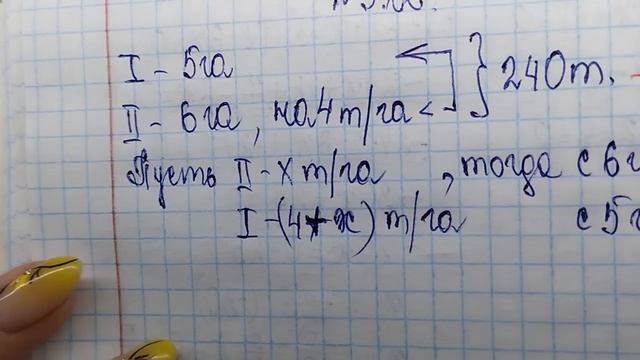 I - 5га
II - 6га, на 4 т/га < } 240т.
Пусть II - х т/га, тогда с 6 г
I - (4+х) т/га с 5 г